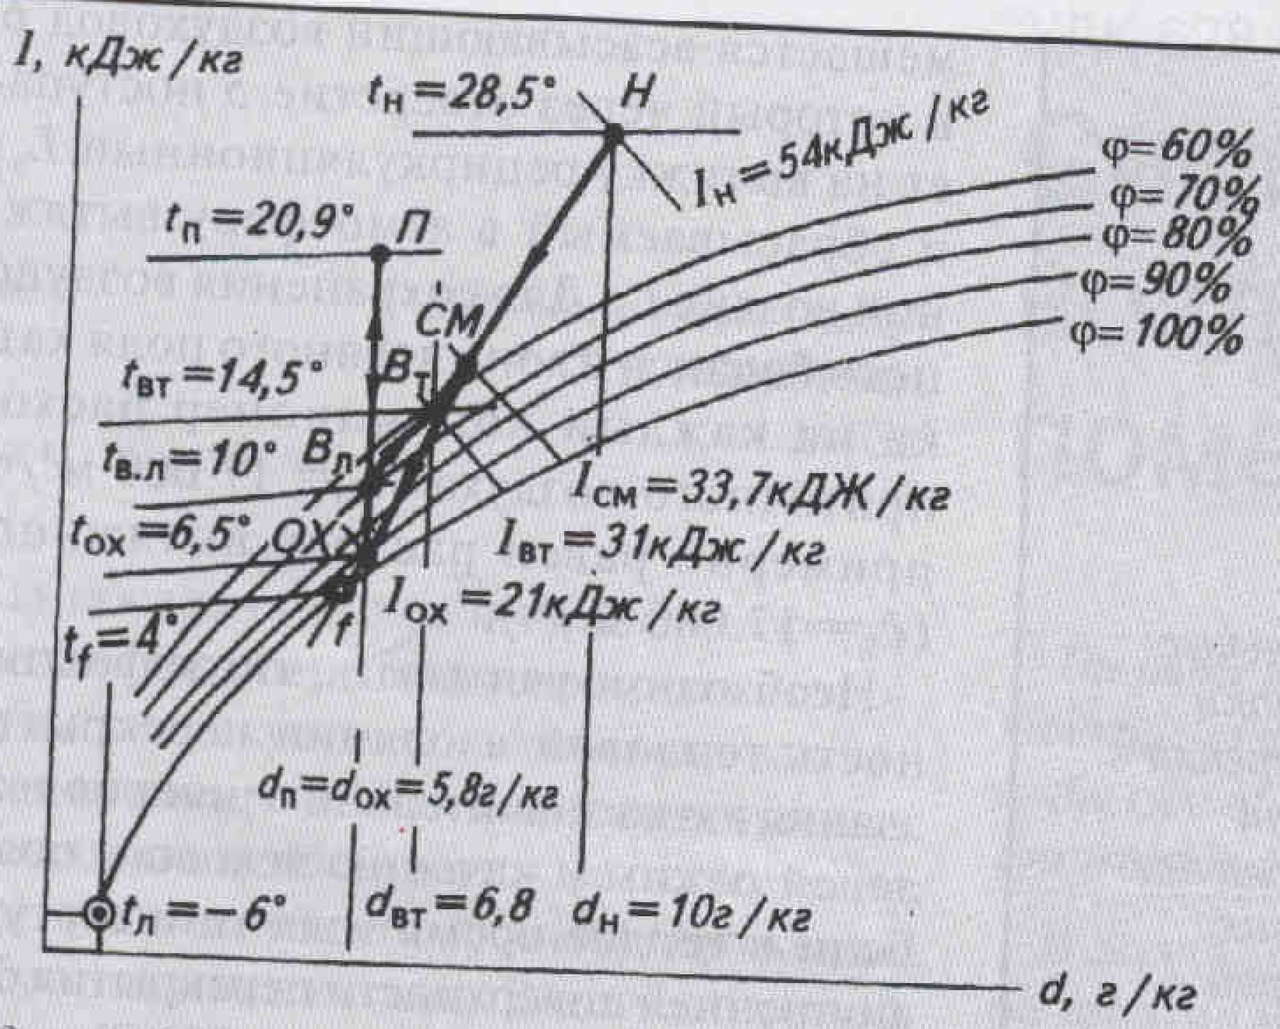 I, кДж/кг
tн=28,5° Н
Iн=54кДж/кг
φ=60%
φ=70%
φ=80%
φ=90%
φ=100%
tп=20,9° П
СМ
tвт=14,5° Вт
tв.л=10° Вл
Iсм=33,7кДЖ/кг
tох=6,5° ОХ
Iвт=31кДж/кг
Iох=21кДж/кг
tf=4° f
dп=dох=5,8г/кг
tл=-6° dвт=6,8 dн=10г/кг
d, г/кг